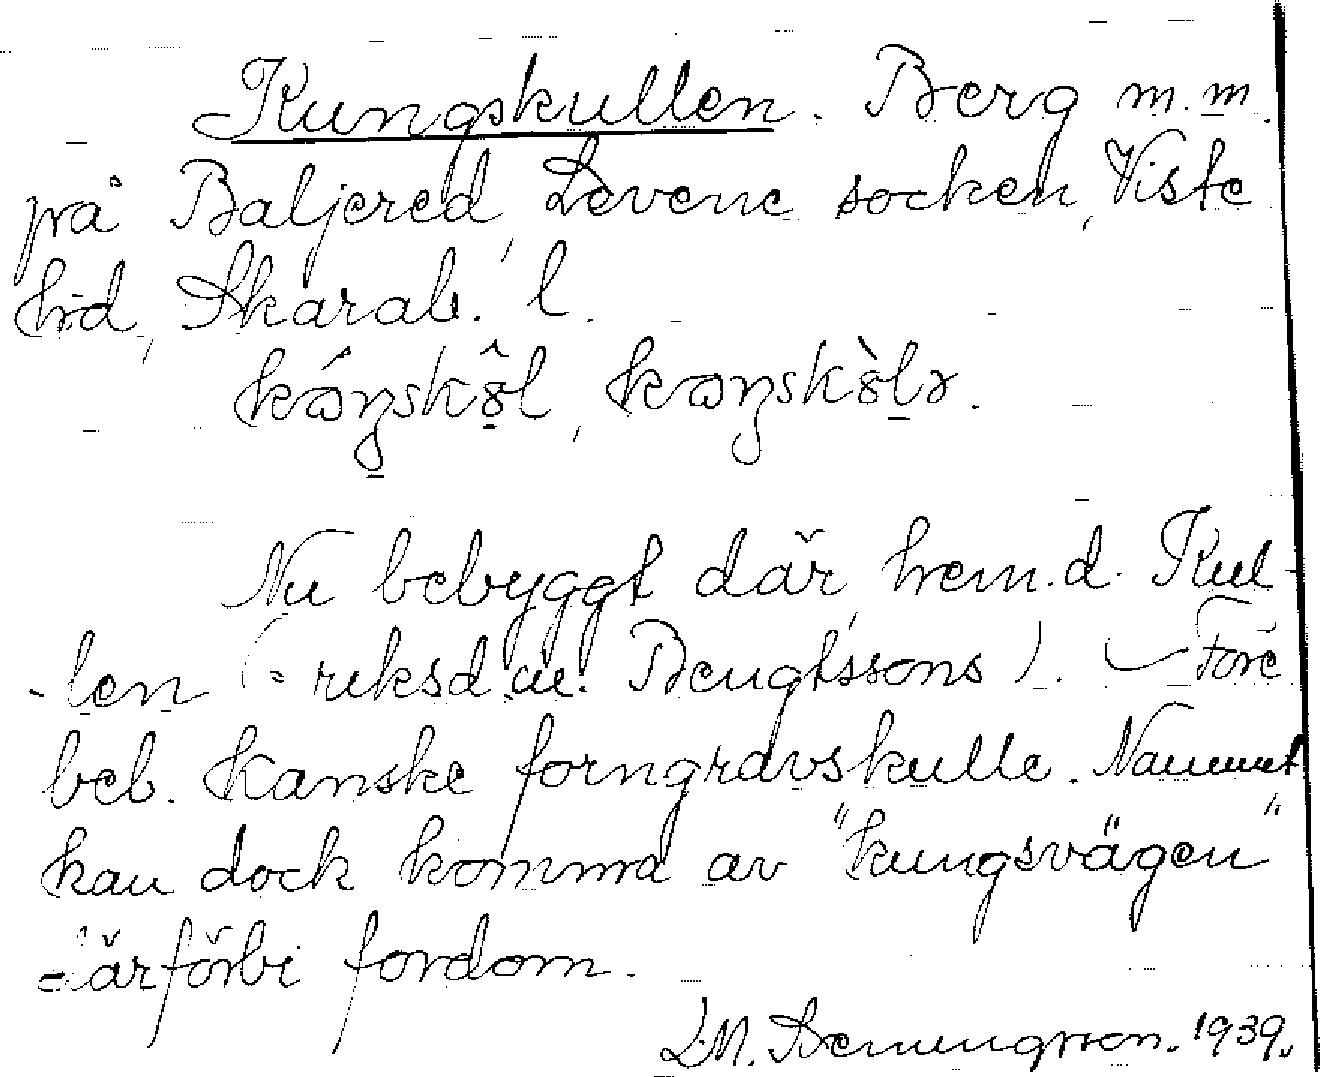 Kungskullen. Berg m.m.
på Baljered, Levene socken, Viste
hrd, Skarab. l.
Nu bebyggt där, hem.d. Kul-
-len (= riksd.m. Bengtssons). Före
beb. Kanske forngravskulle. Namnet
kan dock komma av "kungsvägen"
därförbi fordom.
1939.